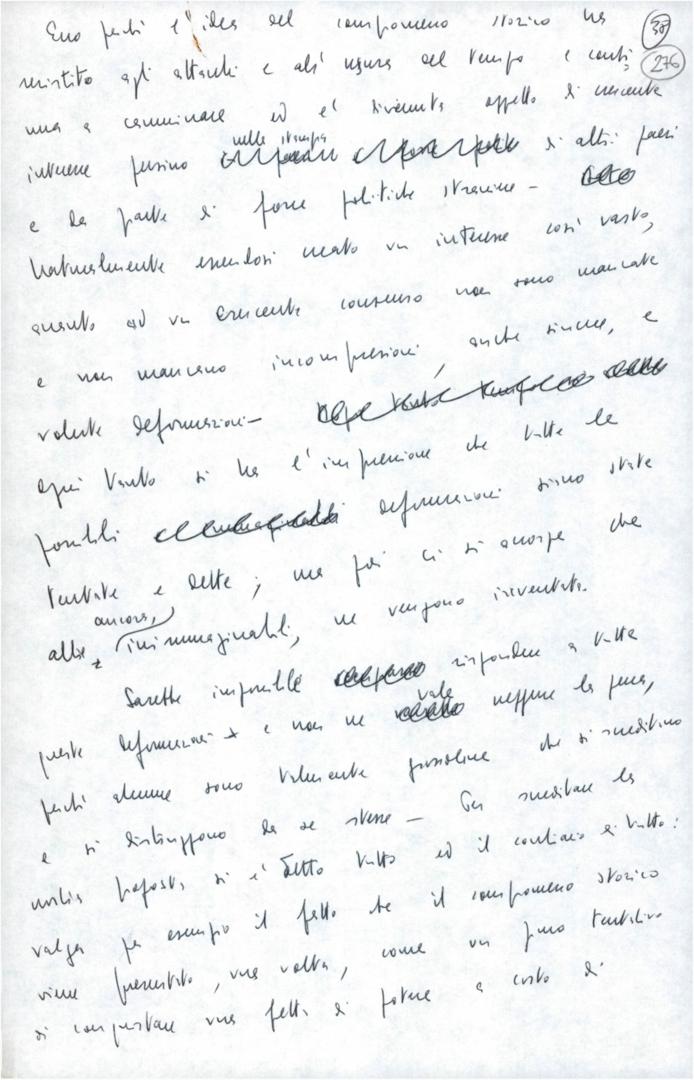 Ecco perché l'idea del compromesso storico ha
38
276
resistito agli attacchi e all'usura del tempo e conti-
nua a camminare ed è divenuta oggetto di crescente
nella stampa
interesse persino di altri paesi
e da parte di forze politiche straniere –
Naturalmente essendosi creato un interesse così vasto,
quanto ad un crescente consenso non sono mancate
e non mancano incomprensioni, anche sincere, e
volute deformazioni –
ogni tanto si ha l'impressione che tutte le
possibili deformazioni siano state
tentate e dette; ma poi ci si accorge che
ancora,
altre, inimmaginabili, ne vengono inventate.
Sarebbe impossibile rispondere a tutte
vale
queste deformazioni e non ne neppure la pena,
perché alcune sono talmente grossolane che si smentiscono
e si distruggono da se stesse – Per smentire la
nostra proposta si è detto tutto ed il contrario di tutto:
valga per esempio il fatto che il compromesso storico
viene presentato, una volta, come un puro tentativo
di conquistare una fetta di potere a costo di